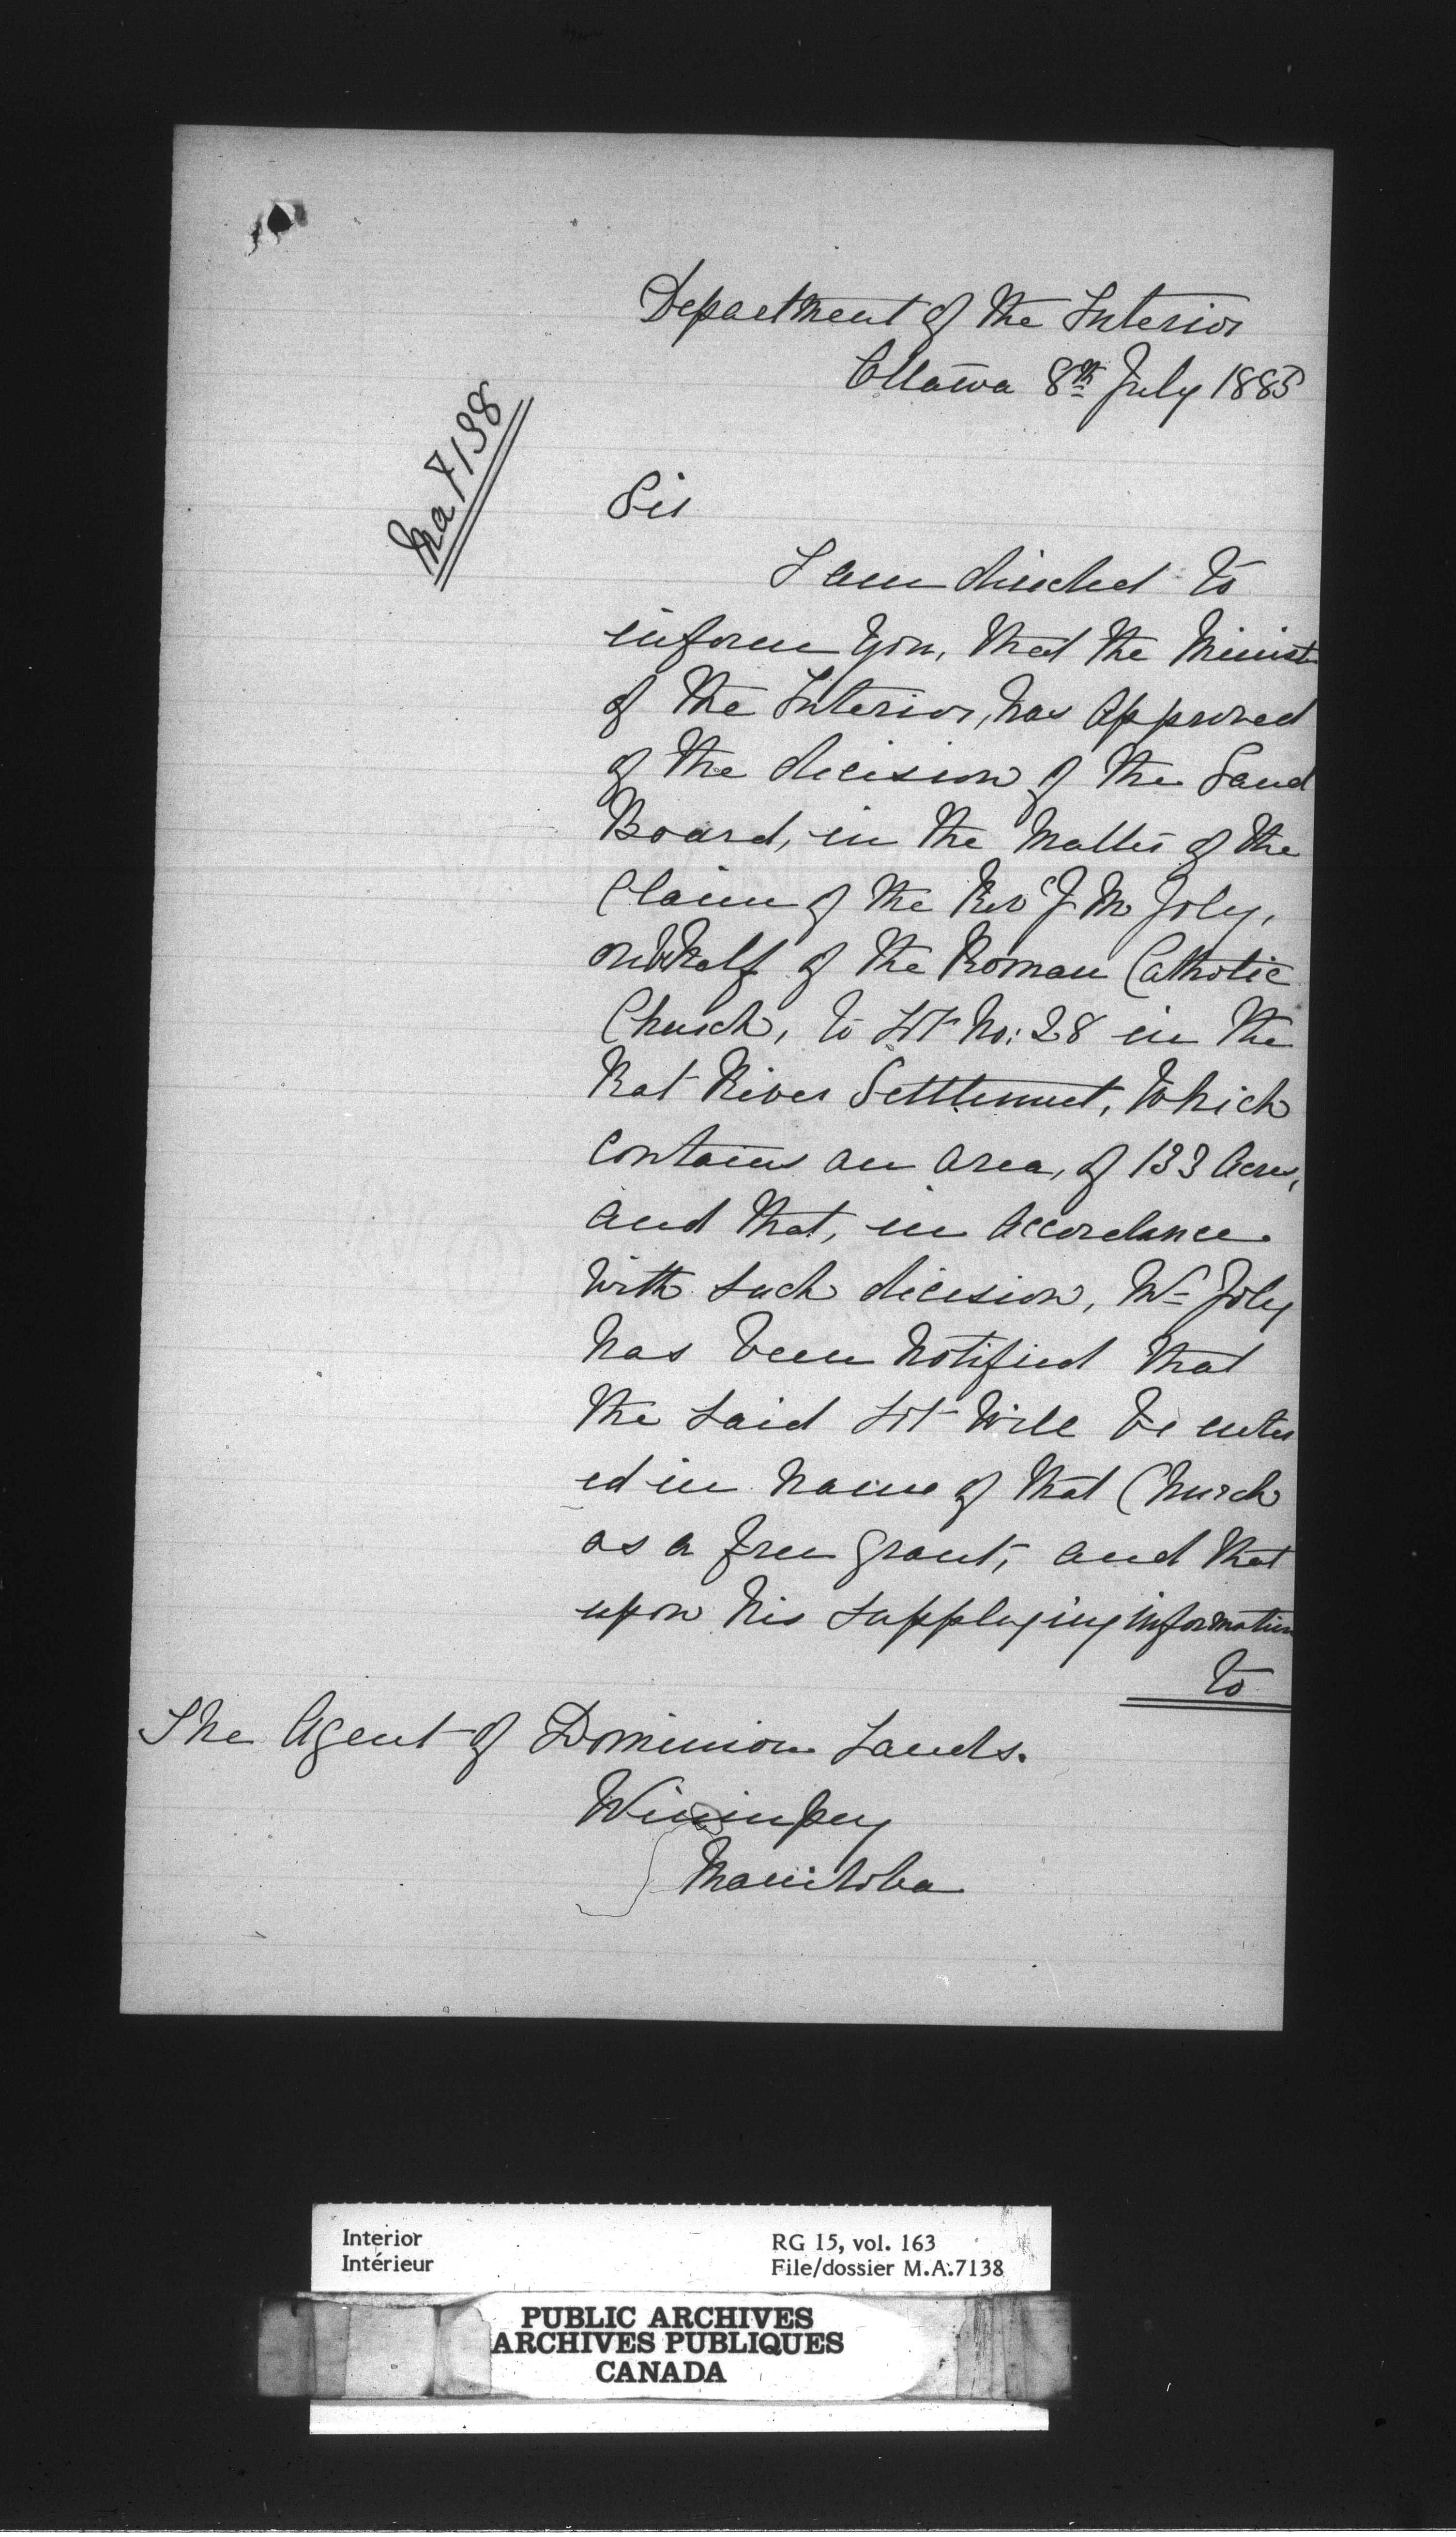 Department of the Interior
Ottawa 8th July 1885
Ma 7138
Sir
I am directed to
inform you, that the Minist
of the Interior, has approved
of the decision of the Land
Board, in the matter of the
Claim of the Revd J M Joly,
on behalf of the Roman Catholic
Church, to Lot No: 28 in the
Rat River Settlement, which
contains an area, of 133 Acres,
and that, in accordance
with such decision, Mr Joly
has been notified that
the said Lot will be enter
ed in name of that Church
as a free grant, and that
upon his supplying information
to
The Agent of Dominion Lands.
Winnipeg
Manitoba
Interior
Intérieur
RG 15, vol. 163
File/dossier M.A.7138
PUBLIC ARCHIVES
ARCHIVES PUBLIQUES
CANADA